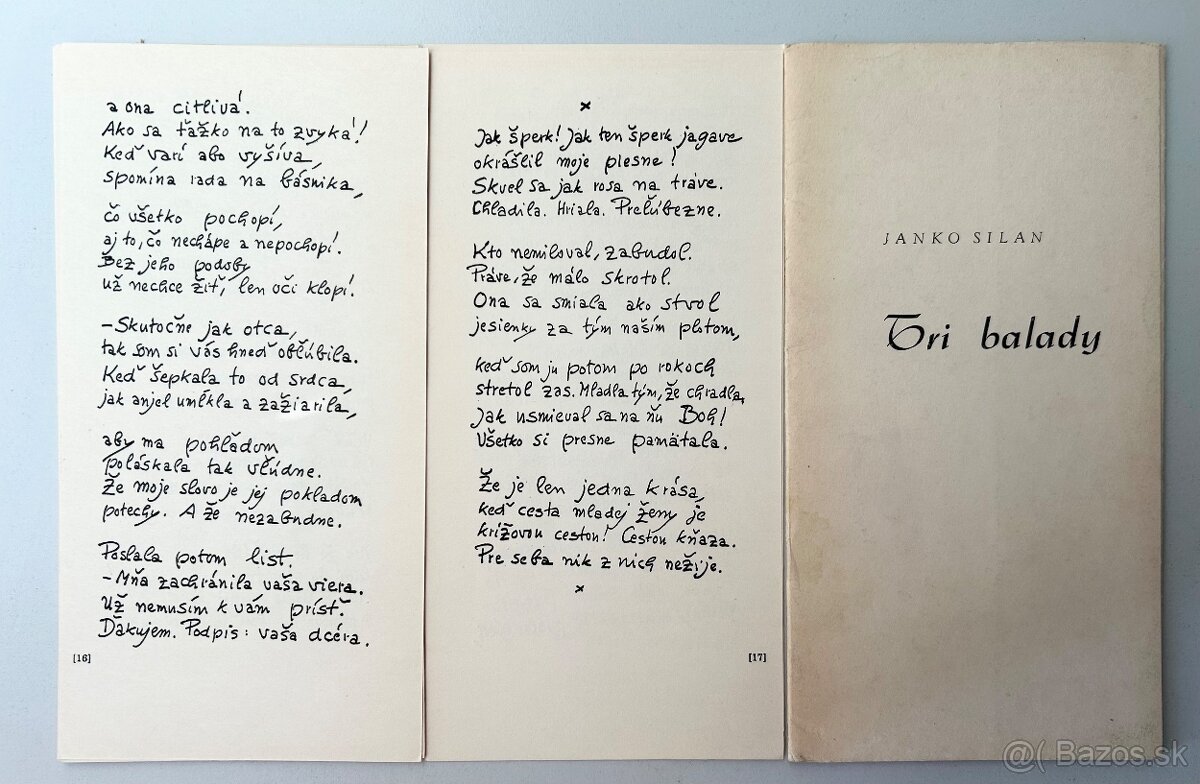 a ona citlivá.
Ako sa ťažko na to zvyká!
Keď varí abo vyšíva,
spomína rada na básnika,
čo všetko pochopí,
aj to, čo nechápe a nepochopí.
Bez jeho podoby
už nechce žiť, len oči klopí.
-Skutočne jak otca,
tak som si vás hneď obľúbila.
Keď šepkala to od srdca,
jak anjel umĺkla a zažiarila,
aby ma pohľadom
poláskala tak vľúdne.
Že moje slovo je jej pokladom
potechy. A že nezabudne.
Poslala potom list.
-Mňa zachránila vaša viera.
Už nemusím k vám prísť.
Ďakujem. Podpis: vaša dcéra.
[16]
×
Jak šperk! Jak ten šperk jagave
okrášlil moje plesne!
Skvel sa jak rosa na tráve.
Chladila. Hriala. Preľúbezne.
Kto nemiloval, zabudol.
Práve, že málo skrotol.
Ona sa smiala ako stvol
jesienky za tým naším plotom,
keď som ju potom po rokoch
stretol zas. Mladla tým, že chradla,
Jak usmieval sa na ňu Boh!
Všetko si presne pamätala.
Že je len jedna krása,
keď cesta mladej ženy je
krížovou cestou! Cestou kňaza.
Pre seba nik z nich nežije.
×
[17]
JANKO SILAN
Tri balady
@( Bazos.sk